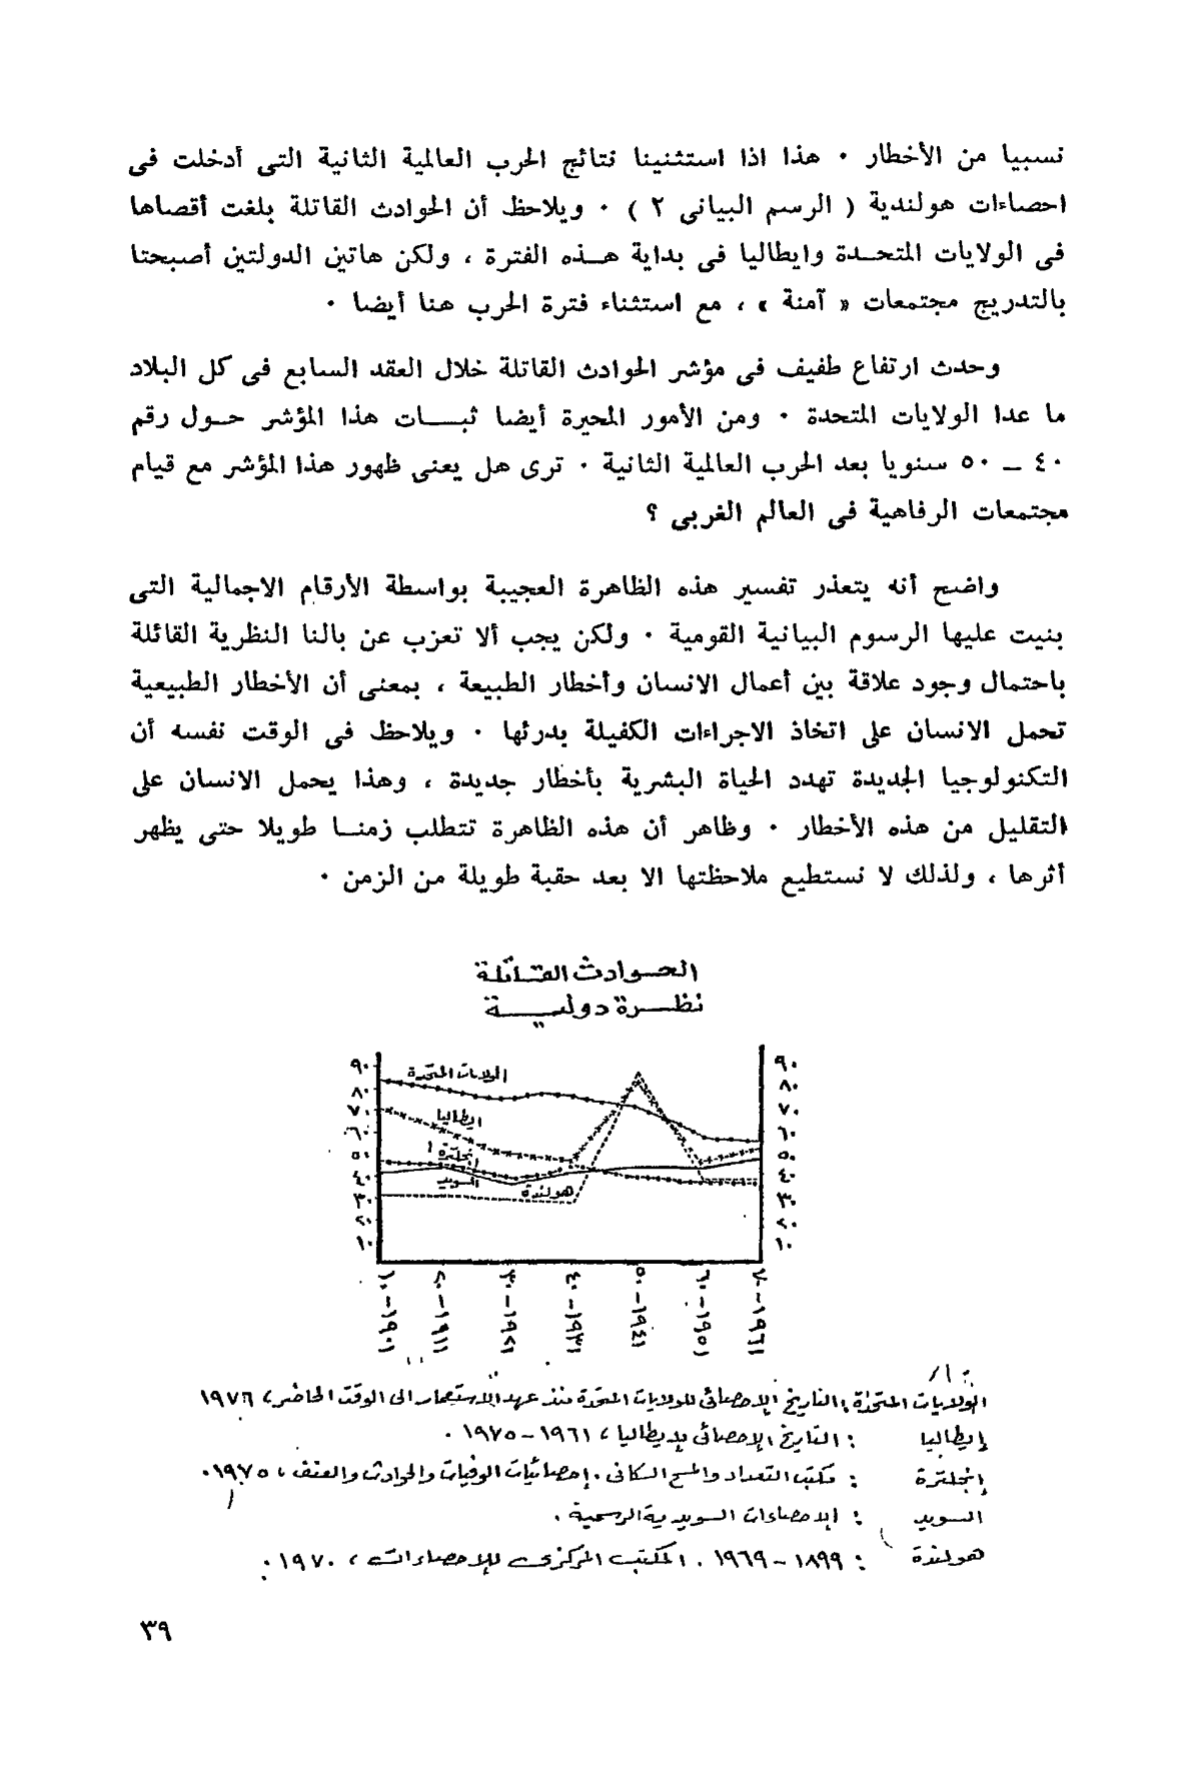 نسبيا من الأخطار ٠ هذا اذا استثنينا نتائج الحرب العالمية الثانية التى أدخلت فى
احصاءات هولندية ( الرسم البيانى ٢ ) ٠ ويلاحظ أن الحوادث القاتلة بلغت أقصاها
فى الولايات المتحــدة وايطاليا فى بداية هــذه الفترة ، ولكن هاتين الدولتين أصبحتا
بالتدريج مجتمعات « آمنة » ، مع استثناء فترة الحرب هنا أيضا ٠
وحدث ارتفاع طفيف فى مؤشر الحوادث القاتلة خلال العقد السابع فى كل البلاد
ما عدا الولايات المتحدة ٠ ومن الأمور المحيرة أيضا ثبـــات هذا المؤشر حــول رقم
٤٠ ــ ٥٠ سنويا بعد الحرب العالمية الثانية ٠ ترى هل يعنى ظهور هذا المؤشر مع قيام
مجتمعات الرفاهية فى العالم الغربى ؟
واضح أنه يتعذر تفسير هذه الظاهرة العجيبة بواسطة الأرقام الاجمالية التى
بنيت عليها الرسوم البيانية القومية ٠ ولكن يجب ألا تعزب عن بالنا النظرية القائلة
باحتمال وجود علاقة بين أعمال الانسان وأخطار الطبيعة ، بمعنى أن الأخطار الطبيعية
تحمل الانسان على اتخاذ الاجراءات الكفيلة بدرئها ٠ ويلاحظ فى الوقت نفسه أن
التكنولوجيا الجديدة تهدد الحياة البشرية بأخطار جديدة ، وهذا يحمل الانسان على
التقليل من هذه الأخطار ٠ وظاهر أن هذه الظاهرة تتطلب زمنــا طويلا حتى يظهر
أثرها ، ولذلك لا نستطيع ملاحظتها الا بعد حقبة طويلة من الزمن ٠
الحوادث القاتلة
نظرة دولية
٩٠
٨٠
٧٠
٦٠
٥٠
٤٠
٣٠
٢٠
١٠
الولايات المتحدة
ايطاليا
إنجلترة
السويد
هولندة
٩٠
٨٠
٧٠
٦٠
٥٠
٤٠
٣٠
٢٠
١٠
١٩٠١-١٠
١٩١١-٢٠
١٩٢١-٣٠
١٩٣١-٤٠
١٩٤١-٥٠
١٩٥١-٦٠
١٩٦١-٧٠
الولايات المتحدة : التاريخ الإحصائى للولايات المتحدة منذ عهد الاستعمار الى الوقت الحاضر ، ١٩٧٦
إيطاليا : التاريخ الإحصائى لإيطاليا ، ١٩٦١ - ١٩٧٥ .
إنجلترة : مكتب التعداد والمسح السكانى . إحصائيات الوفيات والحوادث والعنف ، ١٩٧٥ .
السويد : الإحصاءات السويدية الرسمية .
هولندة : ١٨٩٩ - ١٩٦٩ . المكتب المركزى للإحصاءات ، ١٩٧٠ .
٣٩